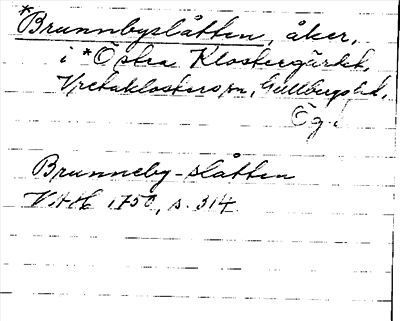 *Brunnbyslåtten, åker,
i *Östra Klostergärdet,
Vretaklosters sn, Gullbergs hd,
Ög.
Brunneby-slåtten
VAH 1750, s. 314